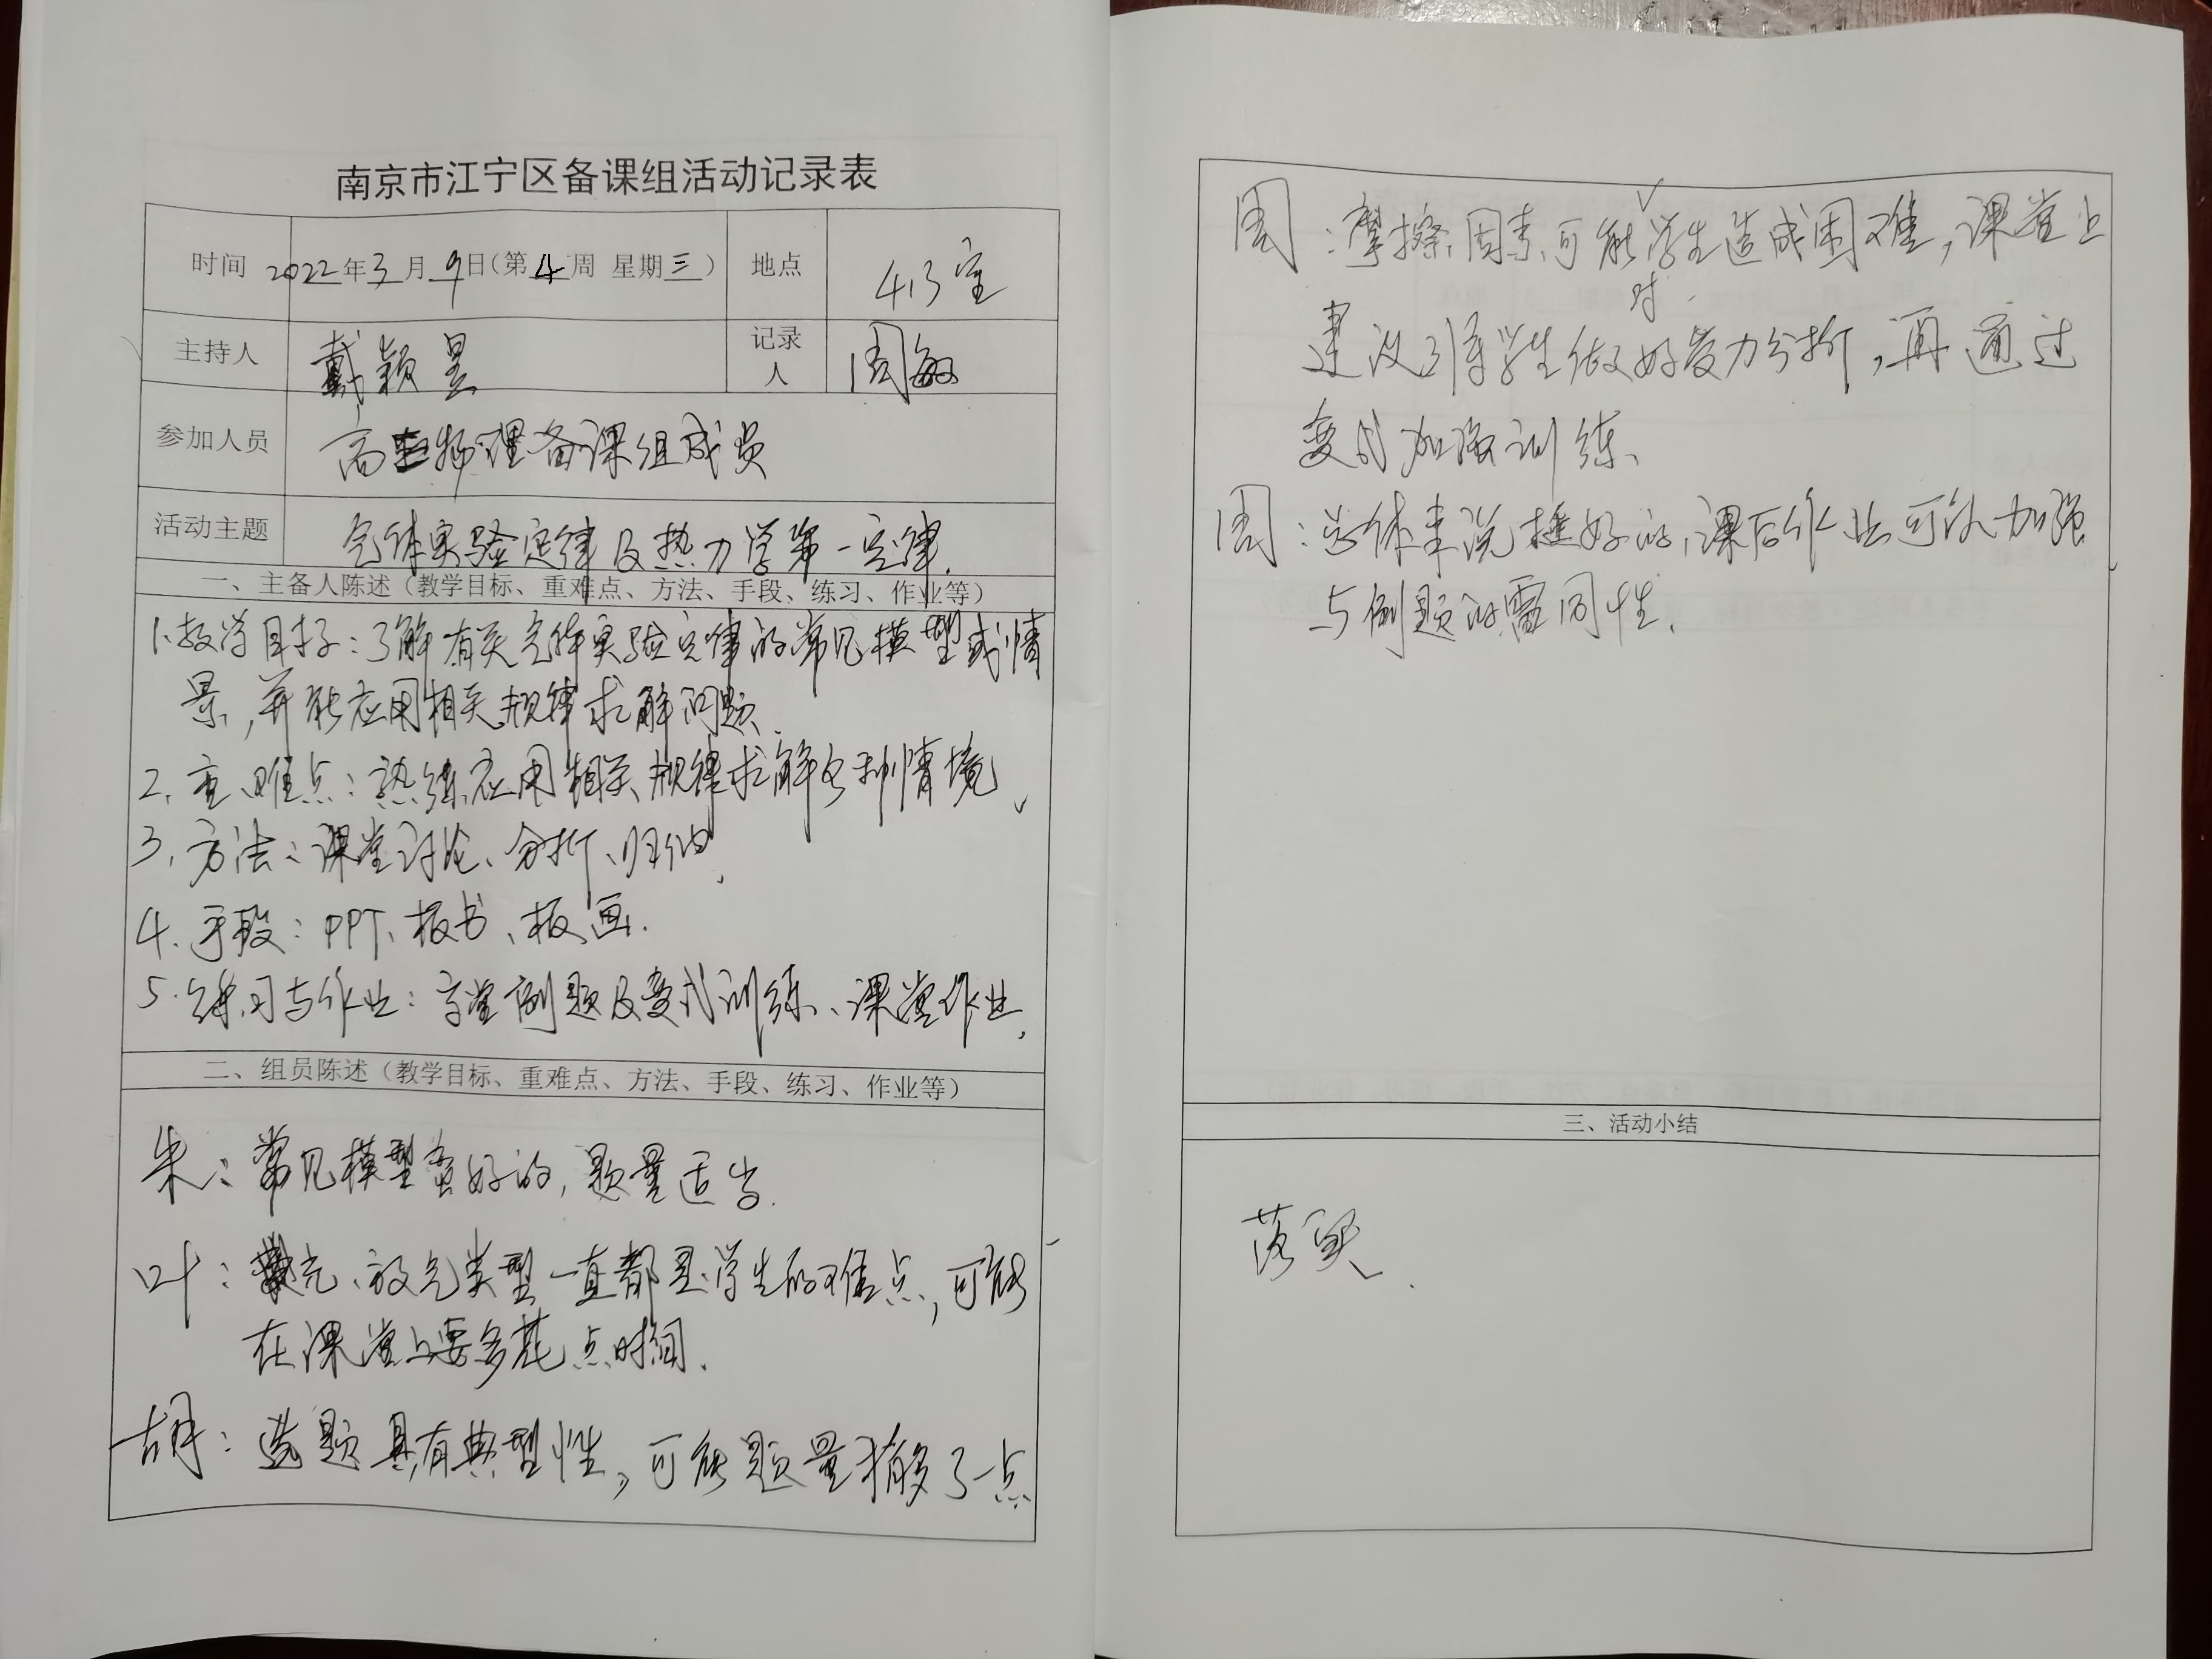 南京市江宁区备课组活动记录表
时间 2022年3月9日(第4周 星期三) 地点 413室
主持人 戴颖昱 记录人 周敏
参加人员 高三物理备课组成员
活动主题 气体实验定律及热力学第一定律.
一、主备人陈述（教学目标、重难点、方法、手段、练习、作业等）
1.教学目标：了解有关气体实验定律的常见模型或情
景，并能应用相关规律求解问题.
2.重、难点：熟练应用相关规律求解各种情境、
3.方法：课堂讨论、分析、归纳、
4.手段：PPT、板书、板画.
5.练习与作业：学堂例题及变式训练、课堂作业.
二、组员陈述（教学目标、重难点、方法、手段、练习、作业等）
朱：常见模型蛮好的，题量适当.
叶：充、放气类型一直都是学生的难点，可能
在课堂上要多花点时间.
胡：选题具有典型性，可能题量稍多了一点
周：摩擦因素可能对学生造成困难，课堂上
建议引导学生做好受力分析，再通过
变式加强训练、
周：总体来说挺好的，课后作业可以加强
与例题的雷同性.
三、活动小结
落实.